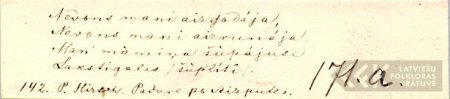 Nevens mani aizgodāja,
Nevens mani airunāja.
Man' māmiņa šūpājuse
Lakstīgalas šūplītī.
142. P. Hiršs. Padurē pr Aizputes.
171.a.
LATVIEŠU
FOLKLORAS
KRĀTUVE